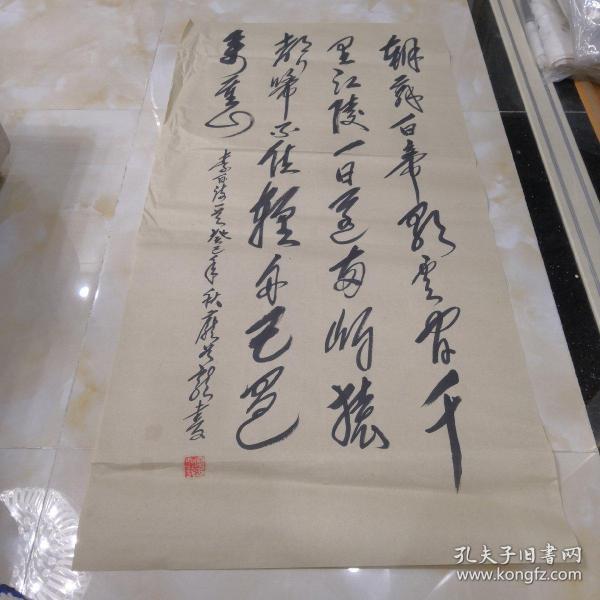 朝辞白帝彩云间千
里江陵一日还两岸猿
声啼不住轻舟已过
万重山
李白诗一首癸巳年秋
孔夫子旧书网
www.kongfz.com